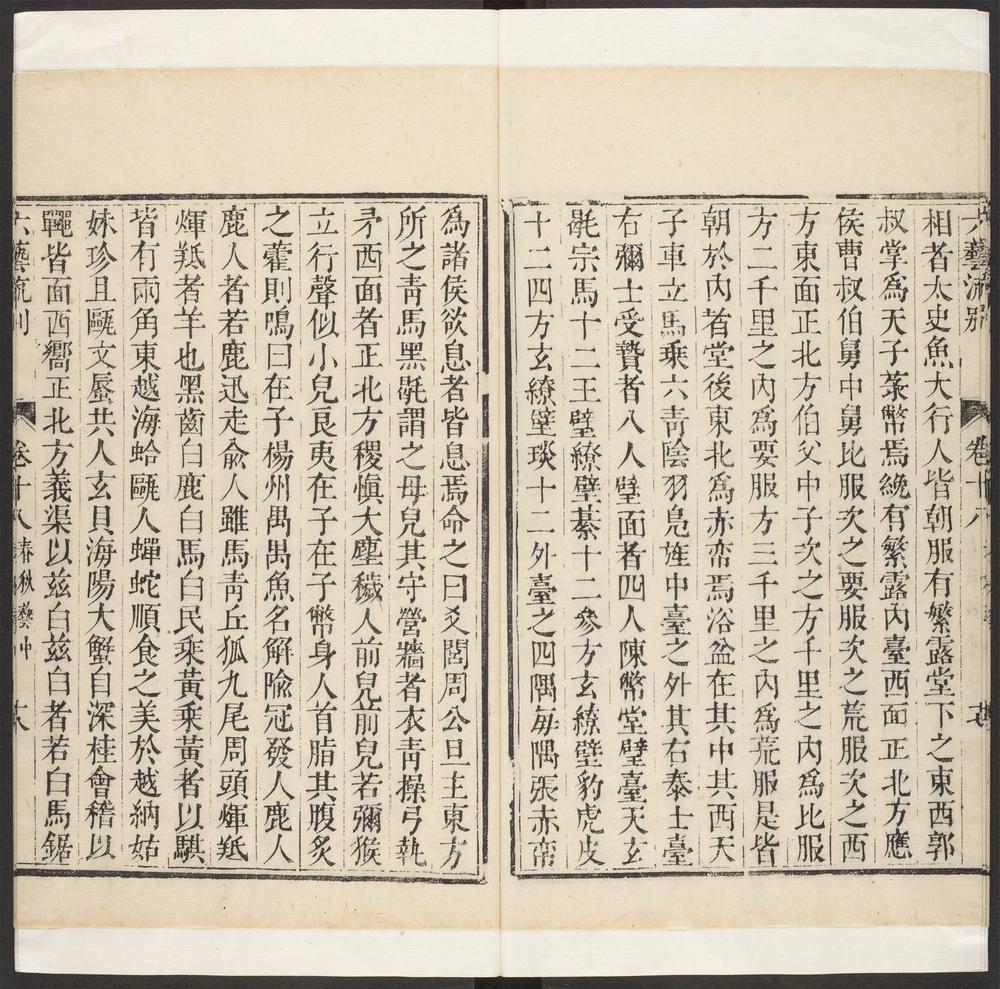 六藝流別
卷十八
相者太史魚大行人皆朝服有繁露堂下之東西郭
叔掌爲天子菉幣焉絻有繁露內臺西面正北方應
侯曹叔伯舅中舅比服次之要服次之荒服次之西
方東面正北方伯父中子次之方千里之內爲比服
方二千里之內爲要服方三千里之內爲荒服是皆
朝於內者堂後東北爲赤帟焉浴盆在其中其西天
子車立馬乘六青陰羽鳧旌中臺之外其右泰士臺
右彌士受贄者八人東面者四人陳幣堂壁臺天玄
毼宗馬十二王璧繚璧綦十二參方玄繚璧豹虎皮
十二四方玄繚璧琰十二外臺之四隅每隅張赤帟
爲諸侯欲息者皆息焉命之曰爻閭周公旦主東方
所之青馬黑毼謂之母兒其守營牆者衣青操弓執
矛西面者正北方稷愼大塵穢人前兒前兒若彌猴
立行聲似小兒良夷在子在子幣身人首脂其腹炙
之藿則鳴曰在子楊州禺禺魚名解隃冠發人鹿人
鹿人者若鹿迅走兪人雖馬青丘狐九尾周頭煇羝
煇羝者羊也黑齒白鹿白馬白民乘黃乘黃者以騏
皆有兩角東越海蛤甌人蟬蛇順食之美於越納姑
妹珍且甌文蜃共人玄貝海陽大蟹自深桂會稽以
鼆皆面西嚮正北方義渠以茲白茲白者若白馬鋸
六藝流別
卷十八 春秋藝中